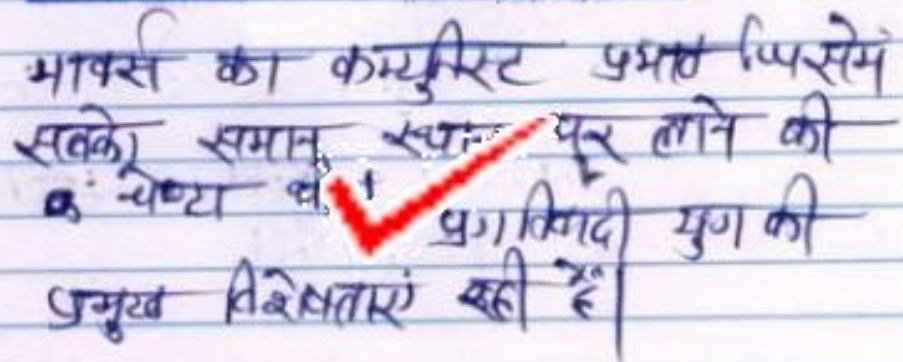 मार्क्स का कम्युनिस्ट प्रभाव जिसमें
सबको समान स्थान पर लाने की
चेष्टा थी।
प्रगतिवादी युग की
प्रमुख विशेषताएं रही हैं।